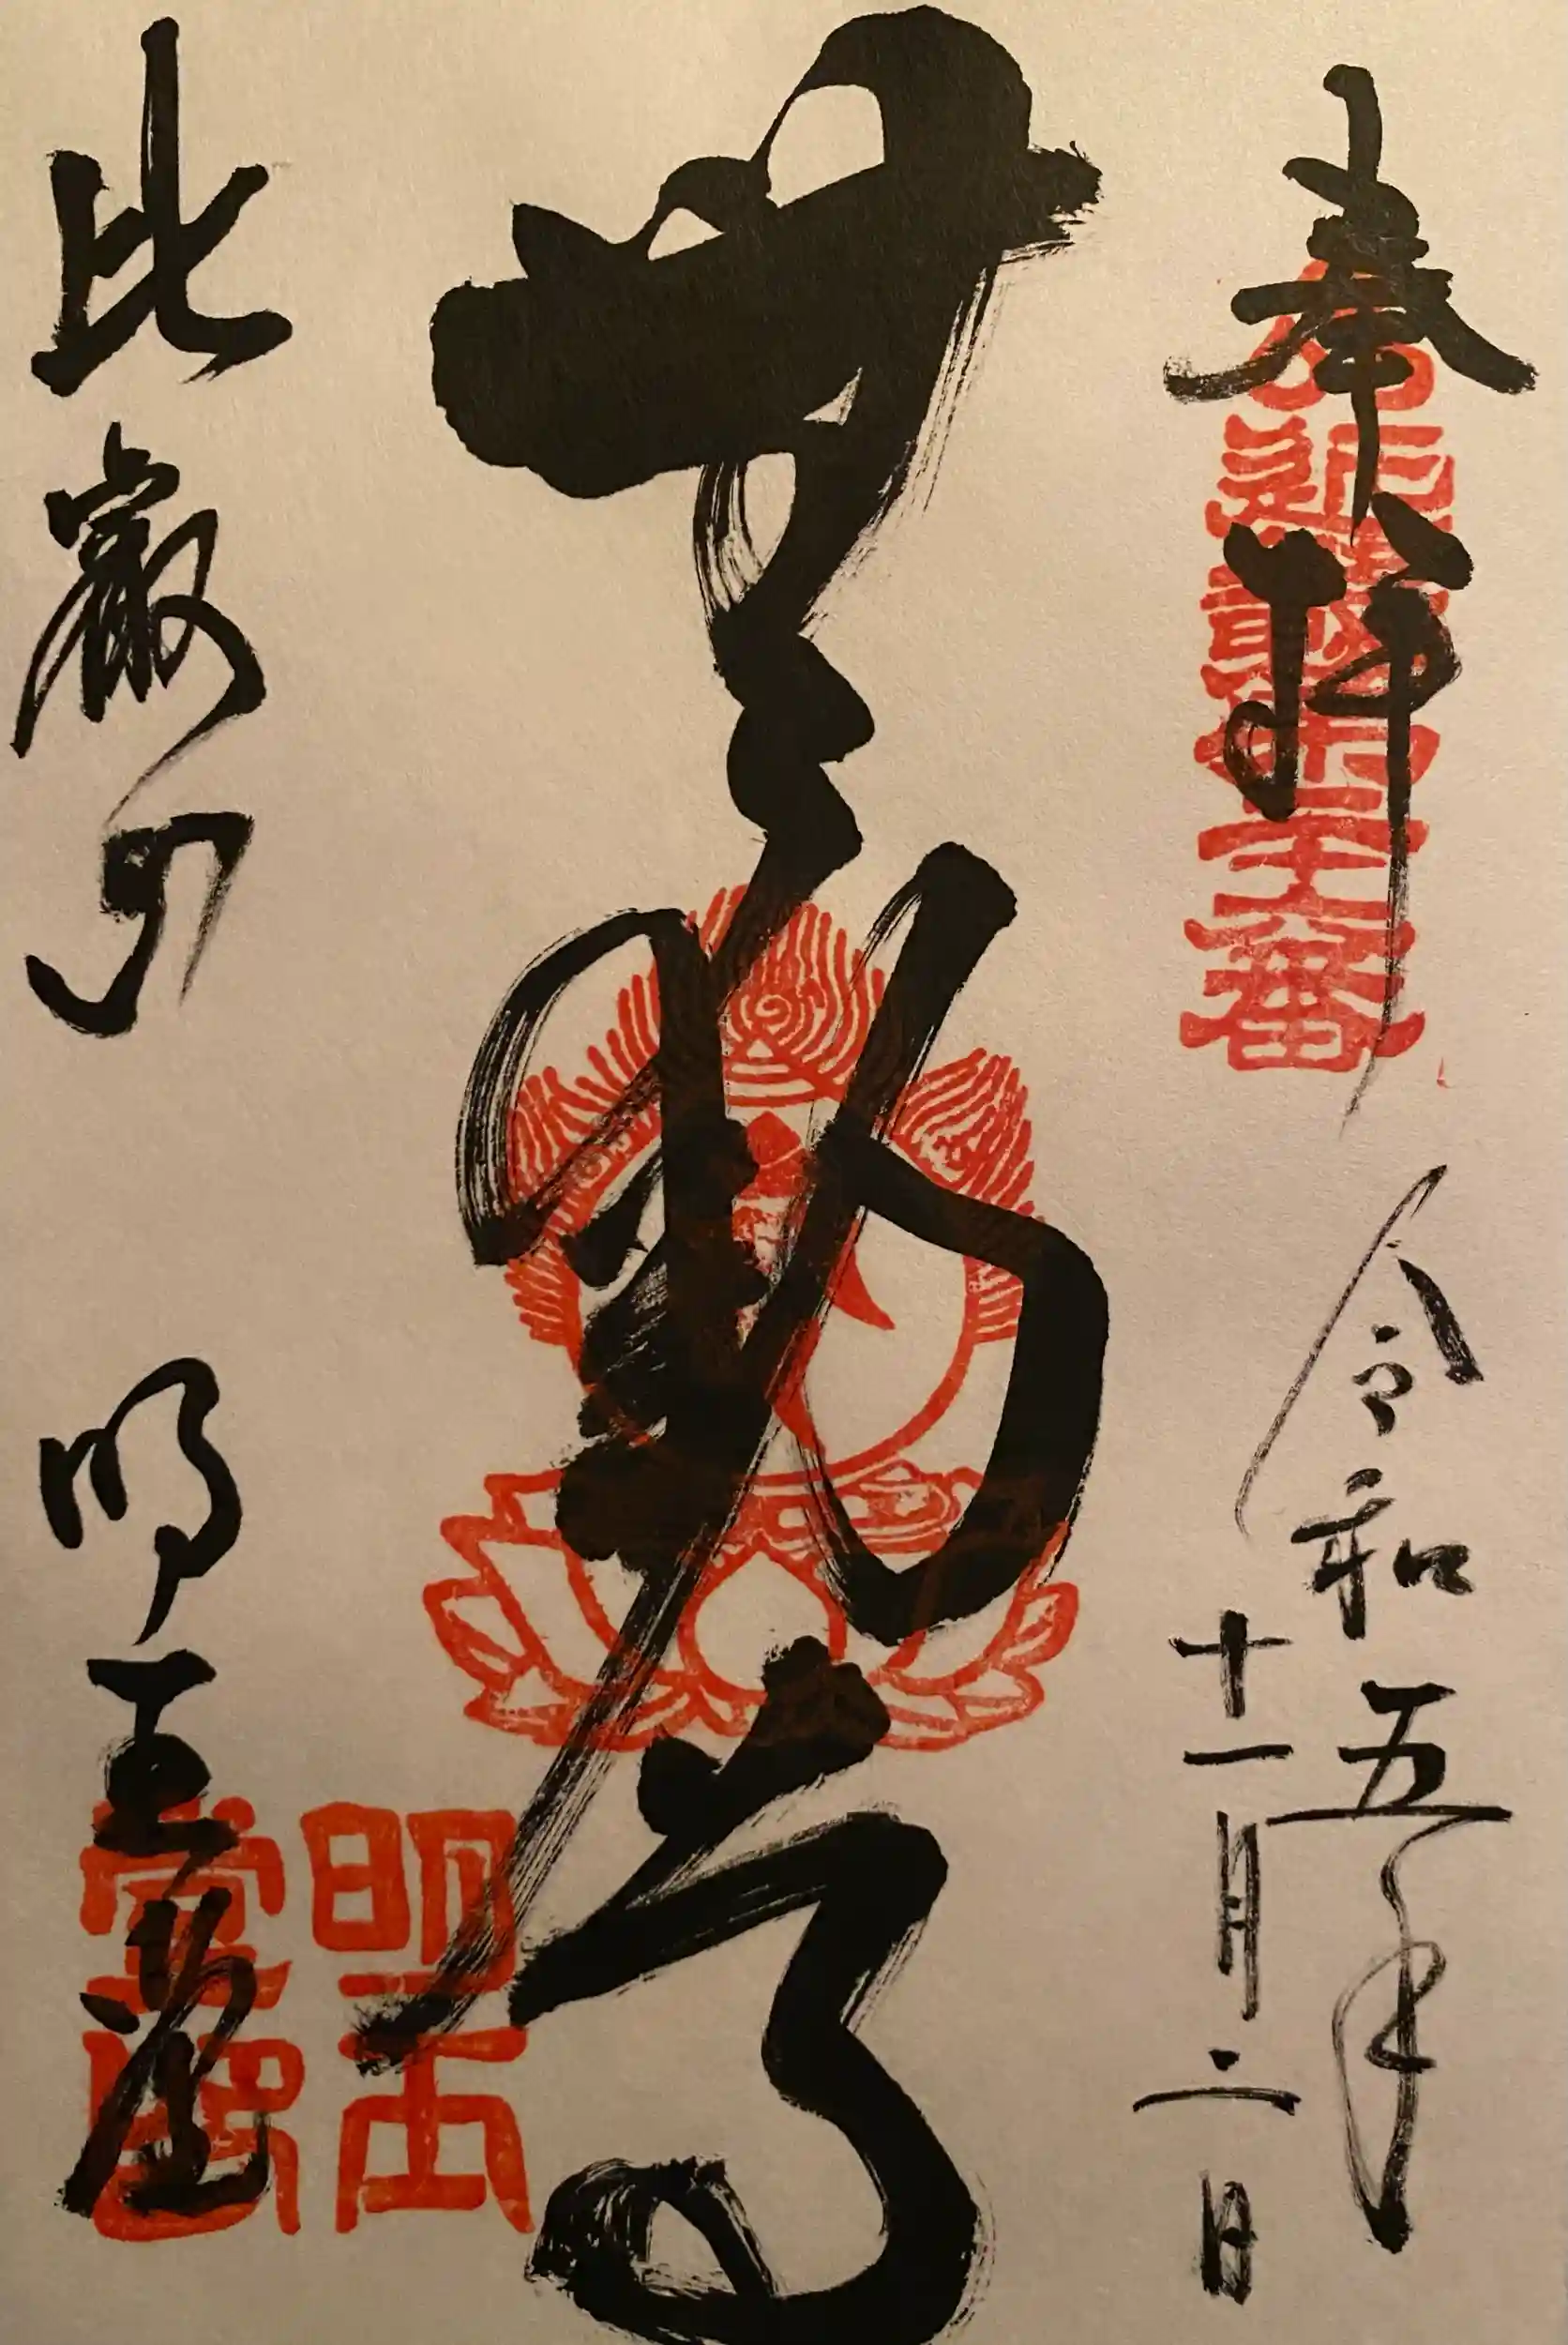 奉拝
令和五年
十一月二日
無動尊
比叡山 明王堂
明王
堂印